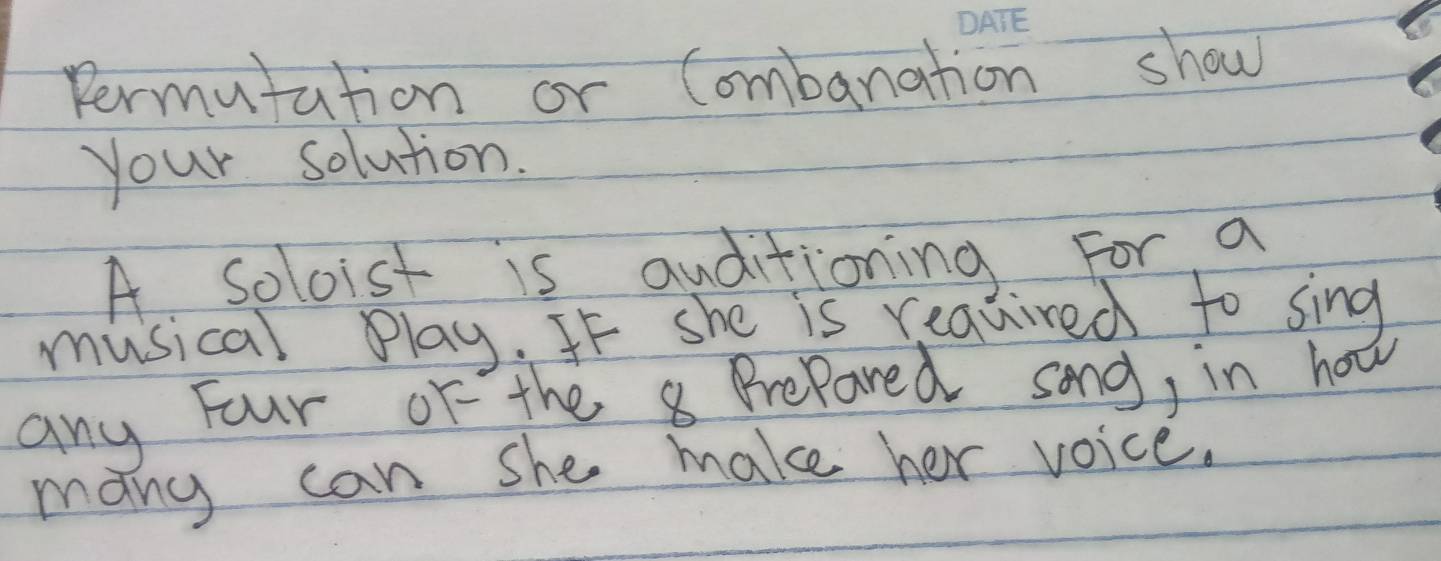 DATE
Permutation or Combanation show
your solution.
A soloist is auditioning For a
musical Play. IF she is required to sing
any Four OF the 8 PrePared song, in how
many can she make her voice.